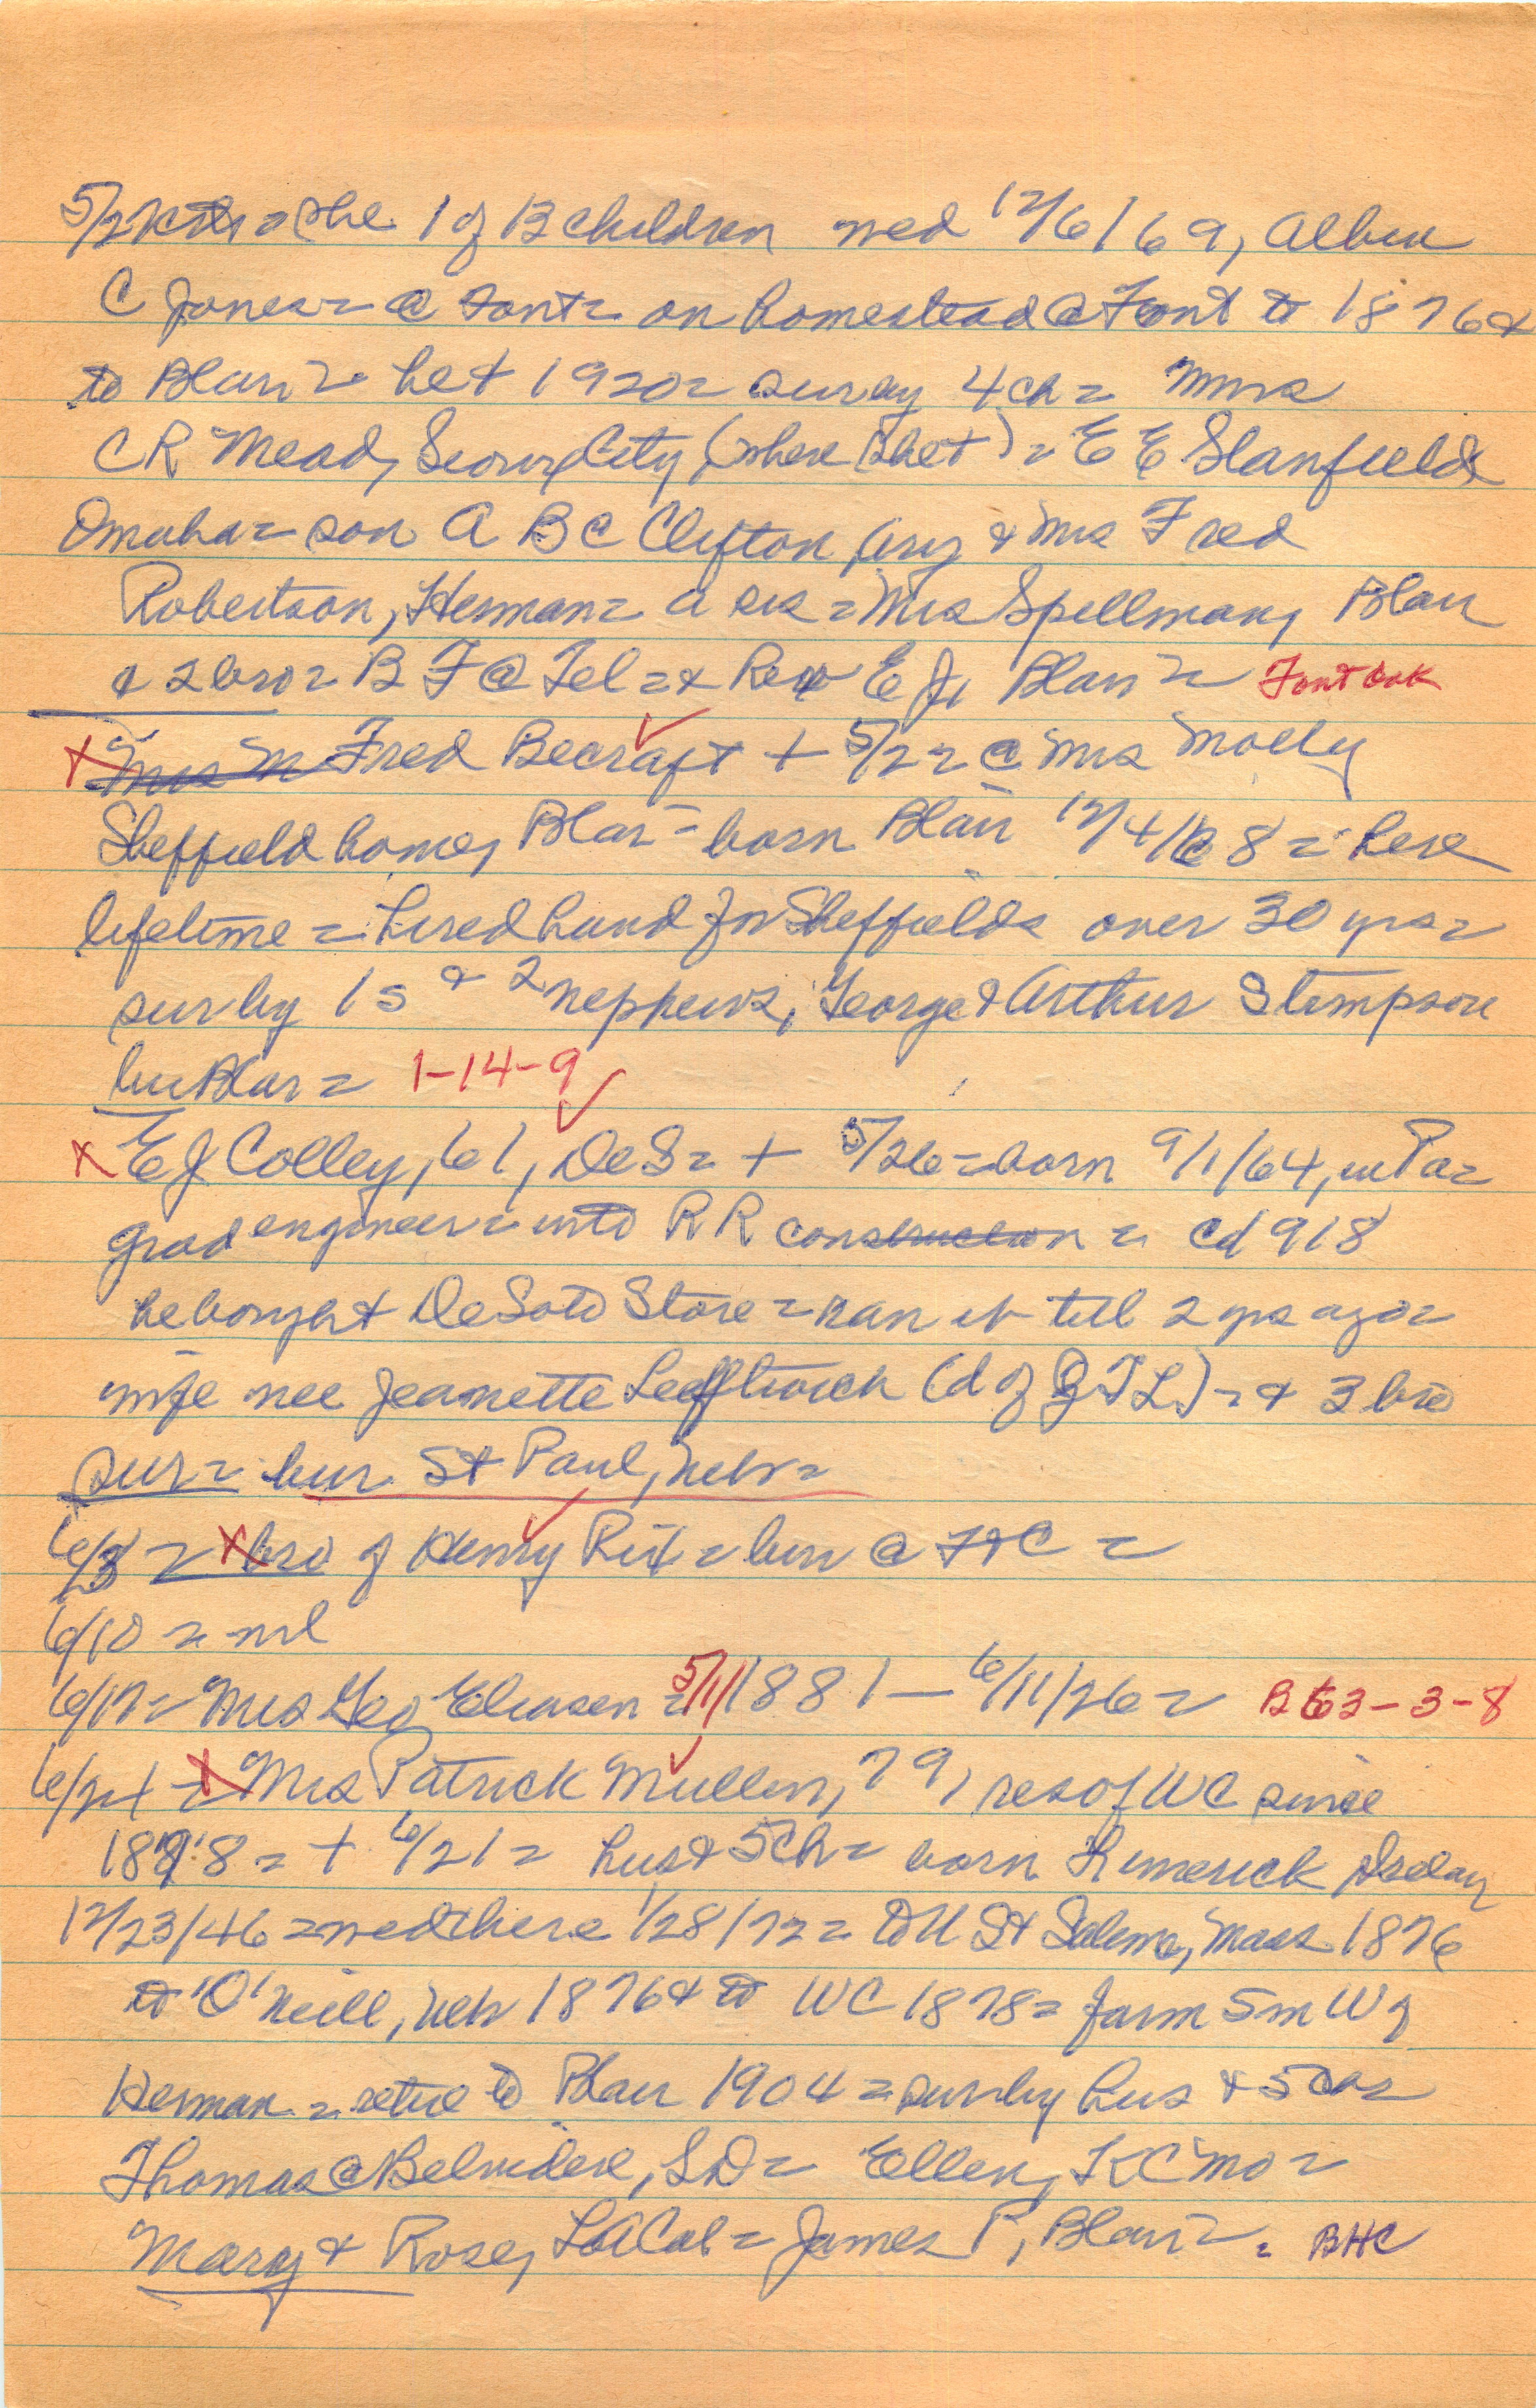 5/27 = she 1 of 13 children wed 12/6/69, Albun
C Jones = @ Font = on homestead @ Font to 1876 &
to Blair = he + 1920 = sur by 4 ch = Mmes
C R Mead, Sioux City, (where she +) = E E Stanfield
Omaha = son A B @ Clifton, Ariz & Mrs Fred
Robertson, Herman = a sis = Mrs Spellman, Blair
& 2 bro = B F @ Tel = & Rev E J, Blair = Font Oak
x Mrs M Fred Becraft + 5/22 @ Mrs Molly
Sheffield home, Blair = born Blair 12/4/68 = here
lifetime = hired hand for Sheffields over 30 yrs =
sur by 1 s & 2 nephews, George & Arthur Stimpson
bur Blair = 1-14-9
x E J Colley, 61, DeS = + 5/26 = born 9/1/64, in Pa =
grad engineer = into R R construction = 1918
he bought DeSoto Store = ran it till 2 yrs ago =
wife nee Jeanette Leeftwich (d of G T L) = & 3 bro
sur = bur St Paul, Neb =
6/3 = x bro of Henry Rix = bur @ Ft C =
6/10 = nil
6/17 = Mrs Geo Eliasen = 5/1/1881 - 6/11/26 = B 63-3-8
6/24 = x Mrs Patrick Mullen, 79, res of WC since
1878 = + 6/21 = hus & 5 ch = born Limerick Ireland
12/23/46 = wed there 1/28/72 = to U St Salem, Mass 1876
to O'Neill, Neb 1876 & to WC 1878 = farm 5 m W of
Herman = retire to Blair 1904 = sur by hus & 5 ch =
Thomas @ Belvidere, SD = Ellen, KC Mo =
Mary & Rose, LA Cal = James P, Blair = = BHC